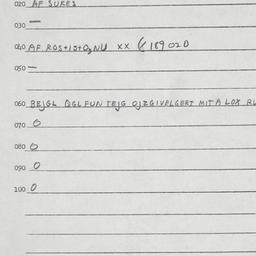 020 AF SUKES
030 —
040 AF ROS+IS+O3NU XX 18902D
050 —
060 BEJGL QGLFUN TEJG OJEGIVALGERT MIT A LOX
070 0
080 0
090 0
100 0